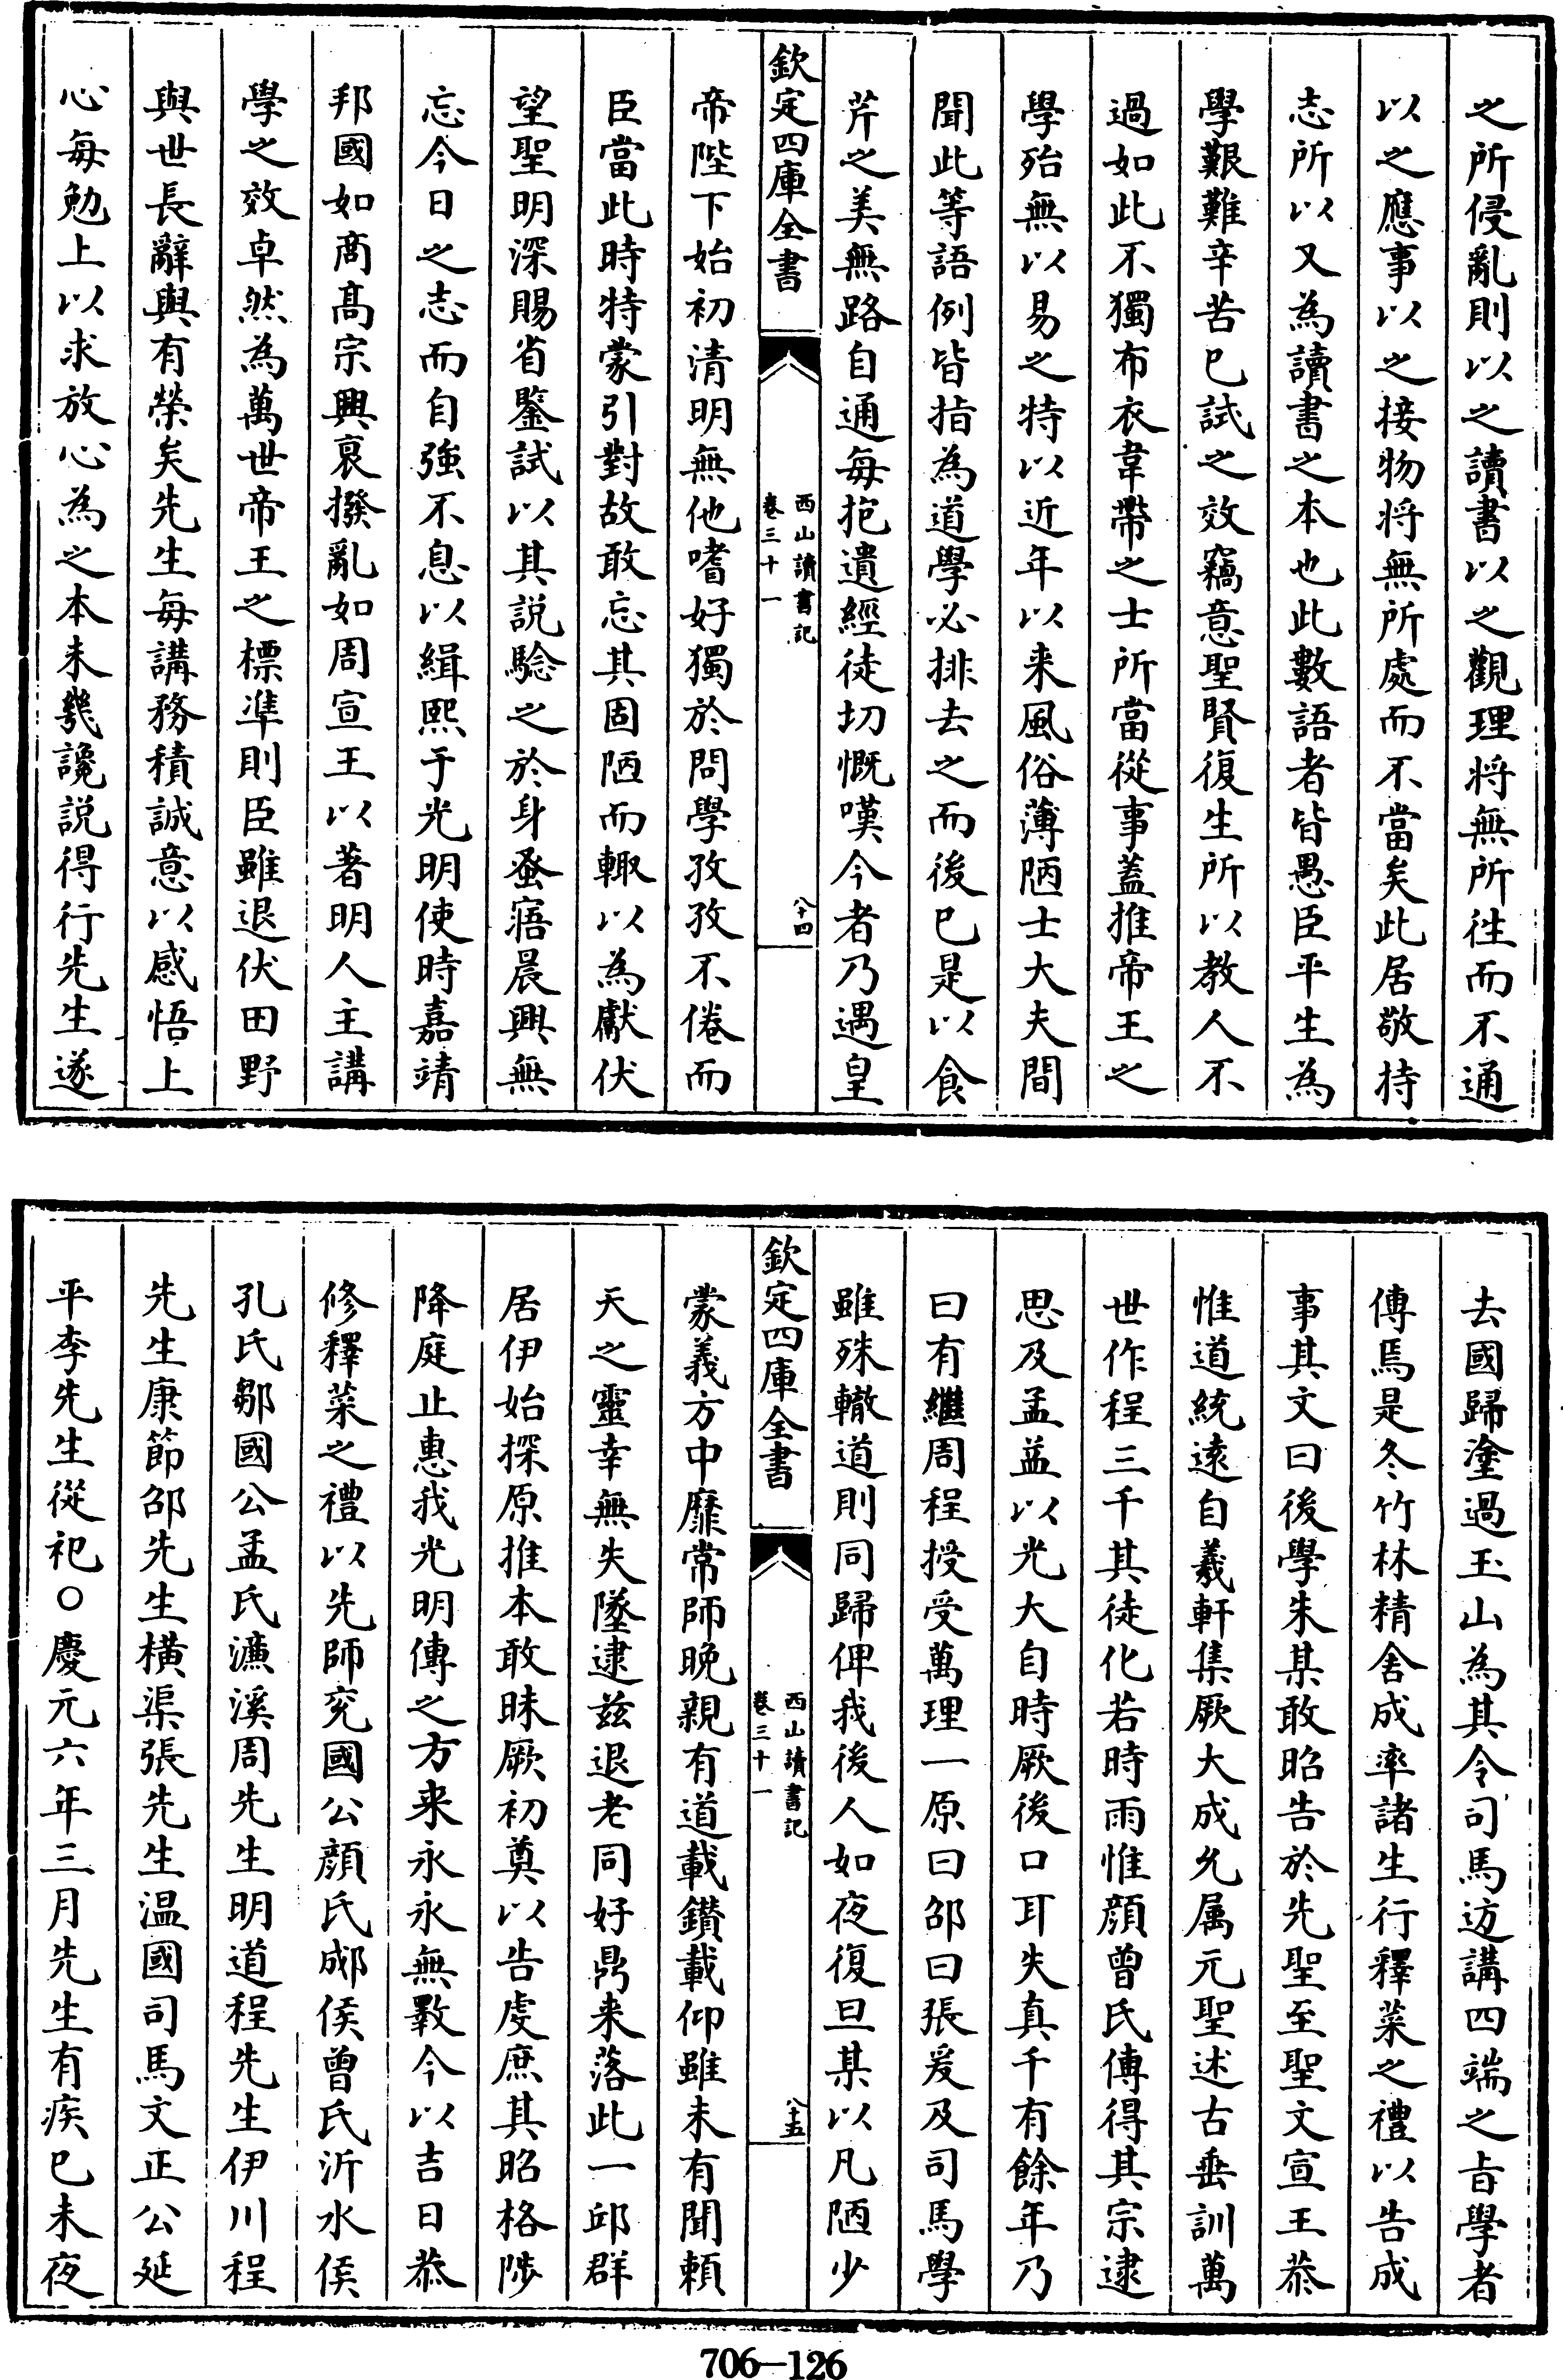 之所侵亂則以之讀書以之觀理將無所往而不通
以之應事以之接物將無所處而不當矣此居敬持
志所以又為讀書之本也此數語者皆愚臣平生為
學艱難辛苦已試之效竊意聖賢復生所以教人不
過如此不獨布衣韋帶之士所當從事蓋推帝王之
學殆無以易之特以近年以来風俗薄陋士大夫間
聞此等語例皆指為道學必排去之而後已是以食
芹之美無路自通每抱遺經徒切慨嘆今者乃遇皇
欽定四庫全書
西山讀書記
卷三十一
八十四
帝陛下始初清明無他嗜好獨於問學孜孜不倦而
臣當此時特蒙引對故敢忘其固陋而輙以為獻伏
望聖明深賜省鑒試以其説騐之於身蚤寤晨興無
忘今日之志而自強不息以緝熙于光明使時嘉靖
邦國如商髙宗興衰撥亂如周宣王以著明人主講
學之效卓然為萬世帝王之標凖則臣雖退伏田野
與世長辭與有榮矣先生每講務積誠意以感悟上
心每勉上以求放心為之本未幾讒説得行先生遂
去國歸塗過玉山為其令司馬迈講四端之㫖學者
傳焉是冬竹林精舍成率諸生行釋菜之禮以告成
事其文曰後學朱某敢昭告於先聖至聖文宣王恭
惟道統逺自羲軒集厥大成允属元聖述古垂訓萬
世作程三千其徒化若時雨惟顔曾氏傳得其宗逮
思及孟益以光大自時厥後口耳失真千有餘年乃
曰有繼周程授受萬理一原曰邵曰張爰及司馬學
雖殊轍道則同歸俾我後人如夜復旦某以凡陋少
欽定四庫全書
西山讀書記
卷三十一
八十五
蒙義方中靡常師晚親有道載鑚載仰雖未有聞頼
天之靈幸無失墜逮兹退老同好鼎来落此一邱群
居伊始探原推本敢昧厥初奠以告虔庶其昭格陟
降庭止惠我光明傳之方来永永無斁今以吉日恭
修釋菜之禮以先師兖國公顔氏郕侯曾氏沂水侯
孔氏鄒國公孟氏濂溪周先生明道程先生伊川程
先生康節邵先生横渠張先生温國司馬文正公延
平李先生從祀○慶元六年三月先生有疾已未夜
706—126